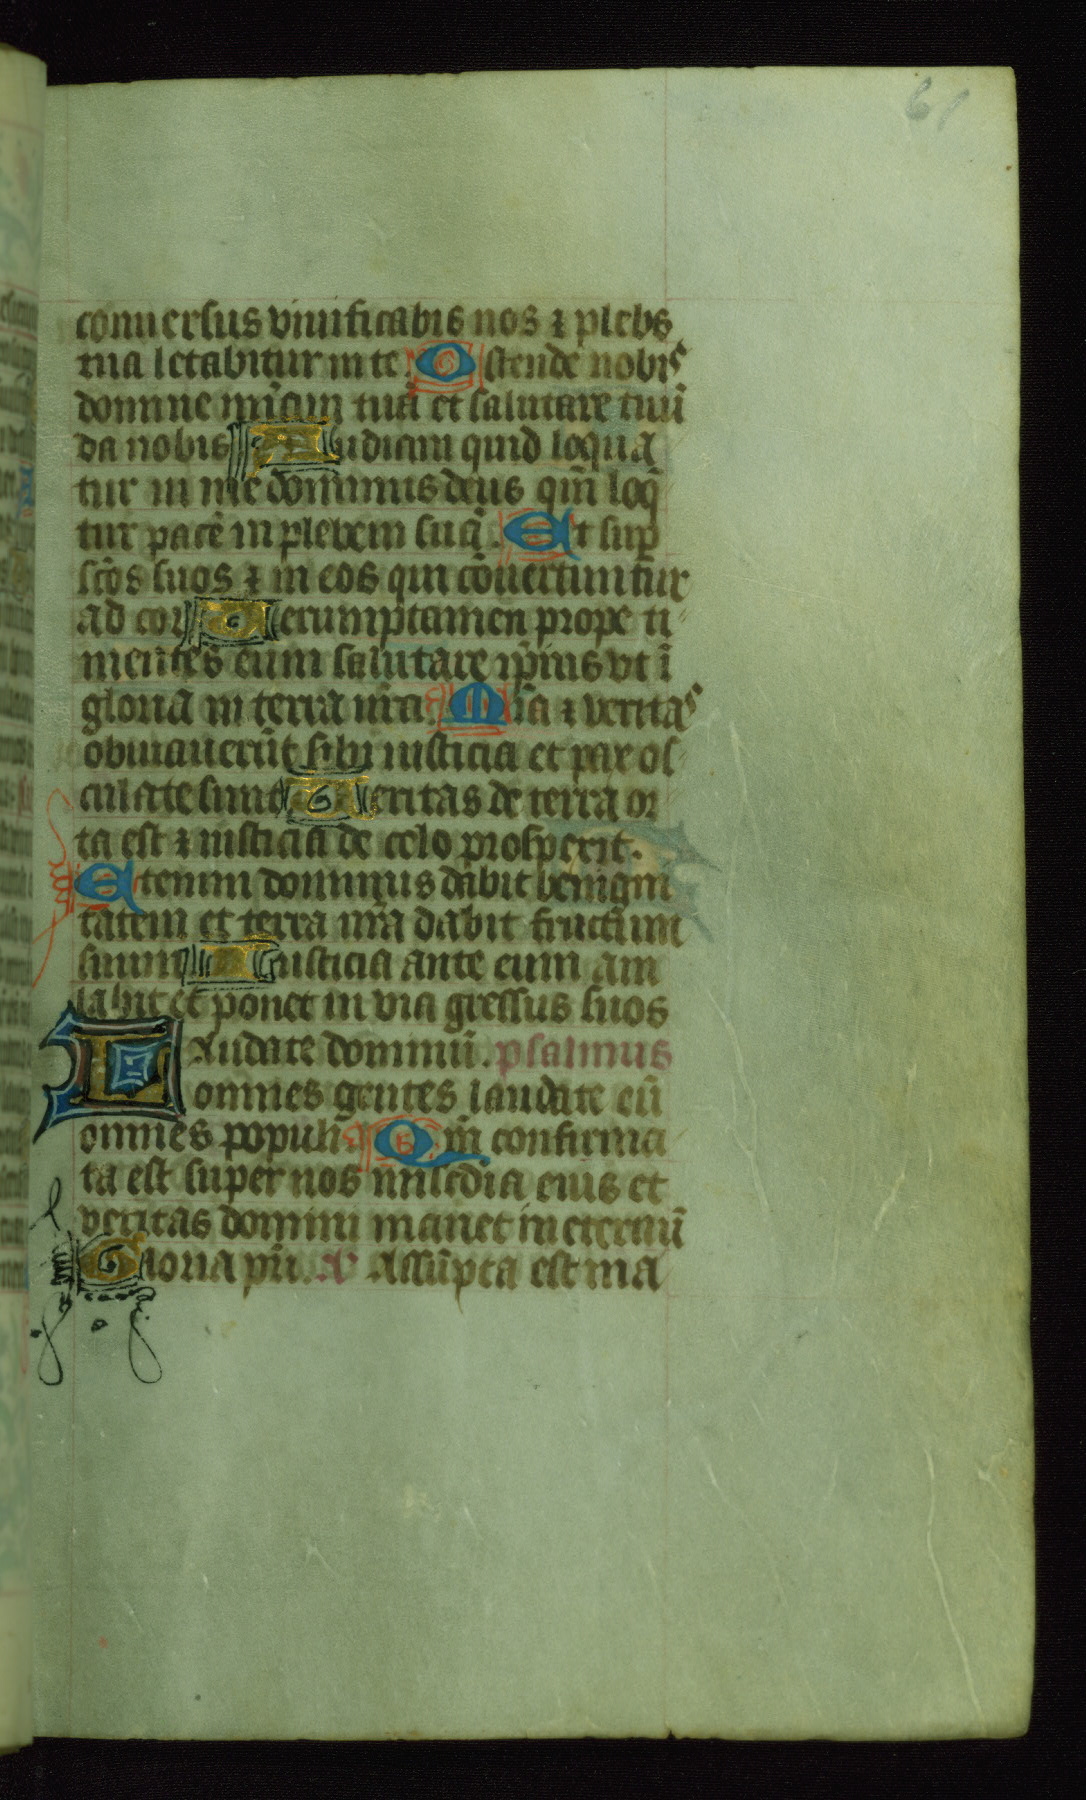 61
conuersus viuificabis nos ⁊ plebs
tua letabitur in te. Ostende nobis
domine mīam tuā et salutare tuū
da nobis Audiam quid loqua
tur in me dominus deus qm̄ loq̄
tur pacē in plebem suā. Et sup
sc̄os suos ⁊ in eos qui cōuertuntur
ad cor Verumptamen prope ti
mentes eum salutare ip̄ius vt ī
gloria in terra nr̄a. Mīa ⁊ veritas
obuiauerūt sibi iusticia et pax os
culate sunt Veritas de terra or
ta est ⁊ iusticia de celo prosperit.
Etenim dominus dabit benigni
tatem et terra nr̄a dabit fructum
suum Iusticia ante eum am
labit et ponet in via gressus suos
Laudate dominū. psalmus
omnes gentes laudate eū
omnes populi Qm̄ confirma
ta est super nos mīscdia eius et
veritas domini manet in eternū
Gloria pr̄i. A Assūpta est ma